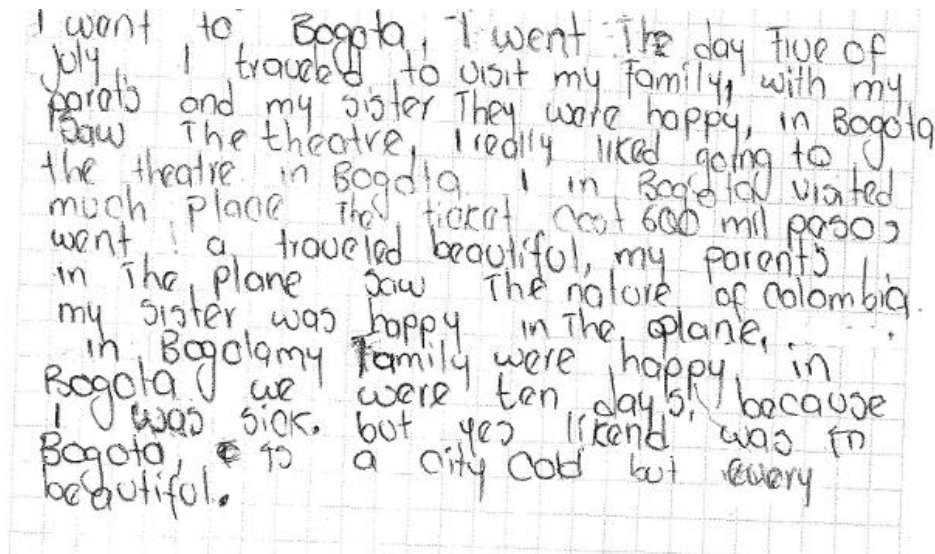 I went to Bogota, I went The day Five of
July, I traveled to visit my Family, with my
parets and my sister They were happy, in Bogota
Saw The theatre, I really liked going to
the theatre in Bogota I in Bogota visited
much place The ticket cost 600 mil pesos
went a traveled beautiful, my parents
in The plane saw The nature of Colombia.
my sister was happy in The plane.
in Bogotamy Family were happy, in
Bogota we were ten days, because
I was sick. but yes likend was in
Bogota, is a city cold but every
beautiful.